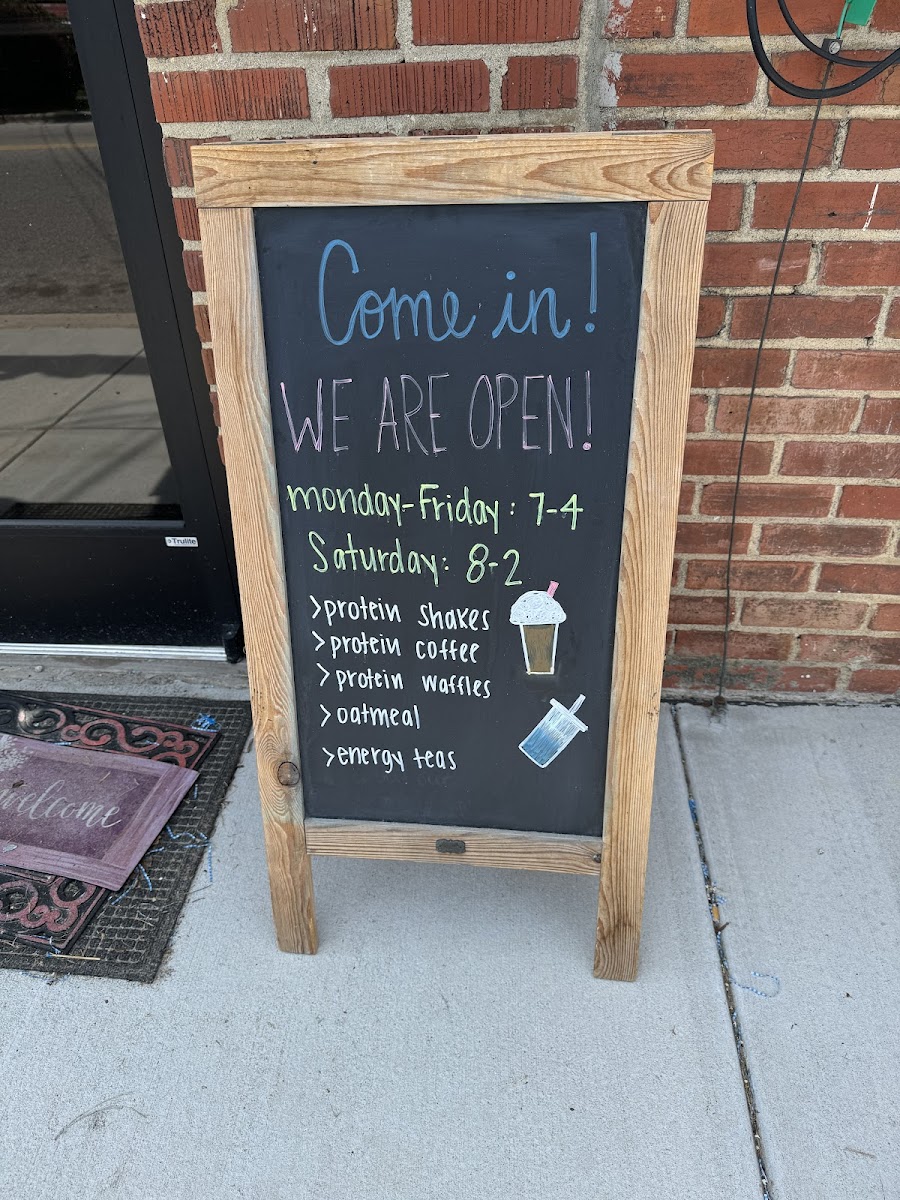 Come in!
WE ARE OPEN!
monday-Friday: 7-4
Saturday: 8-2
>protein shakes
>protein coffee
>protein waffles
>oatmeal
>energy teas
Trulite
welcome